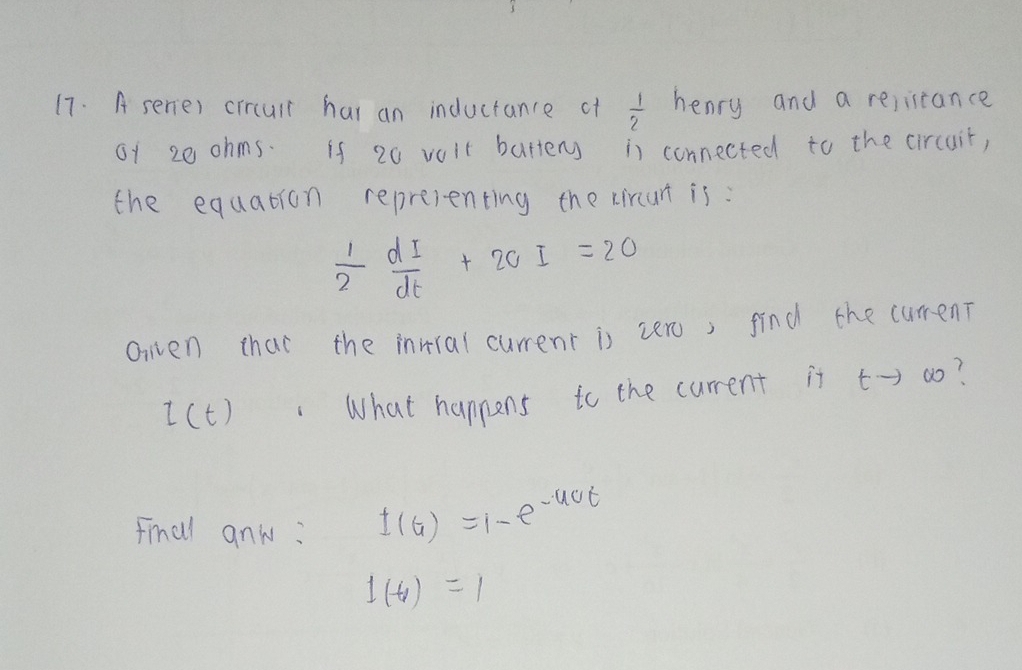 17. A series circuit has an inductance of 1/2 henry and a resistance
of 20 ohms. if 20 volt battery is connected to the circuit,
the equation representing the circuit is :
1/2 dI/dt + 20 I = 20
Given that the initial current is zero, find the current
I(t). What happens to the current if t → ∞?
Final answ : I(t) = 1 - e^-40t
I(t) = 1